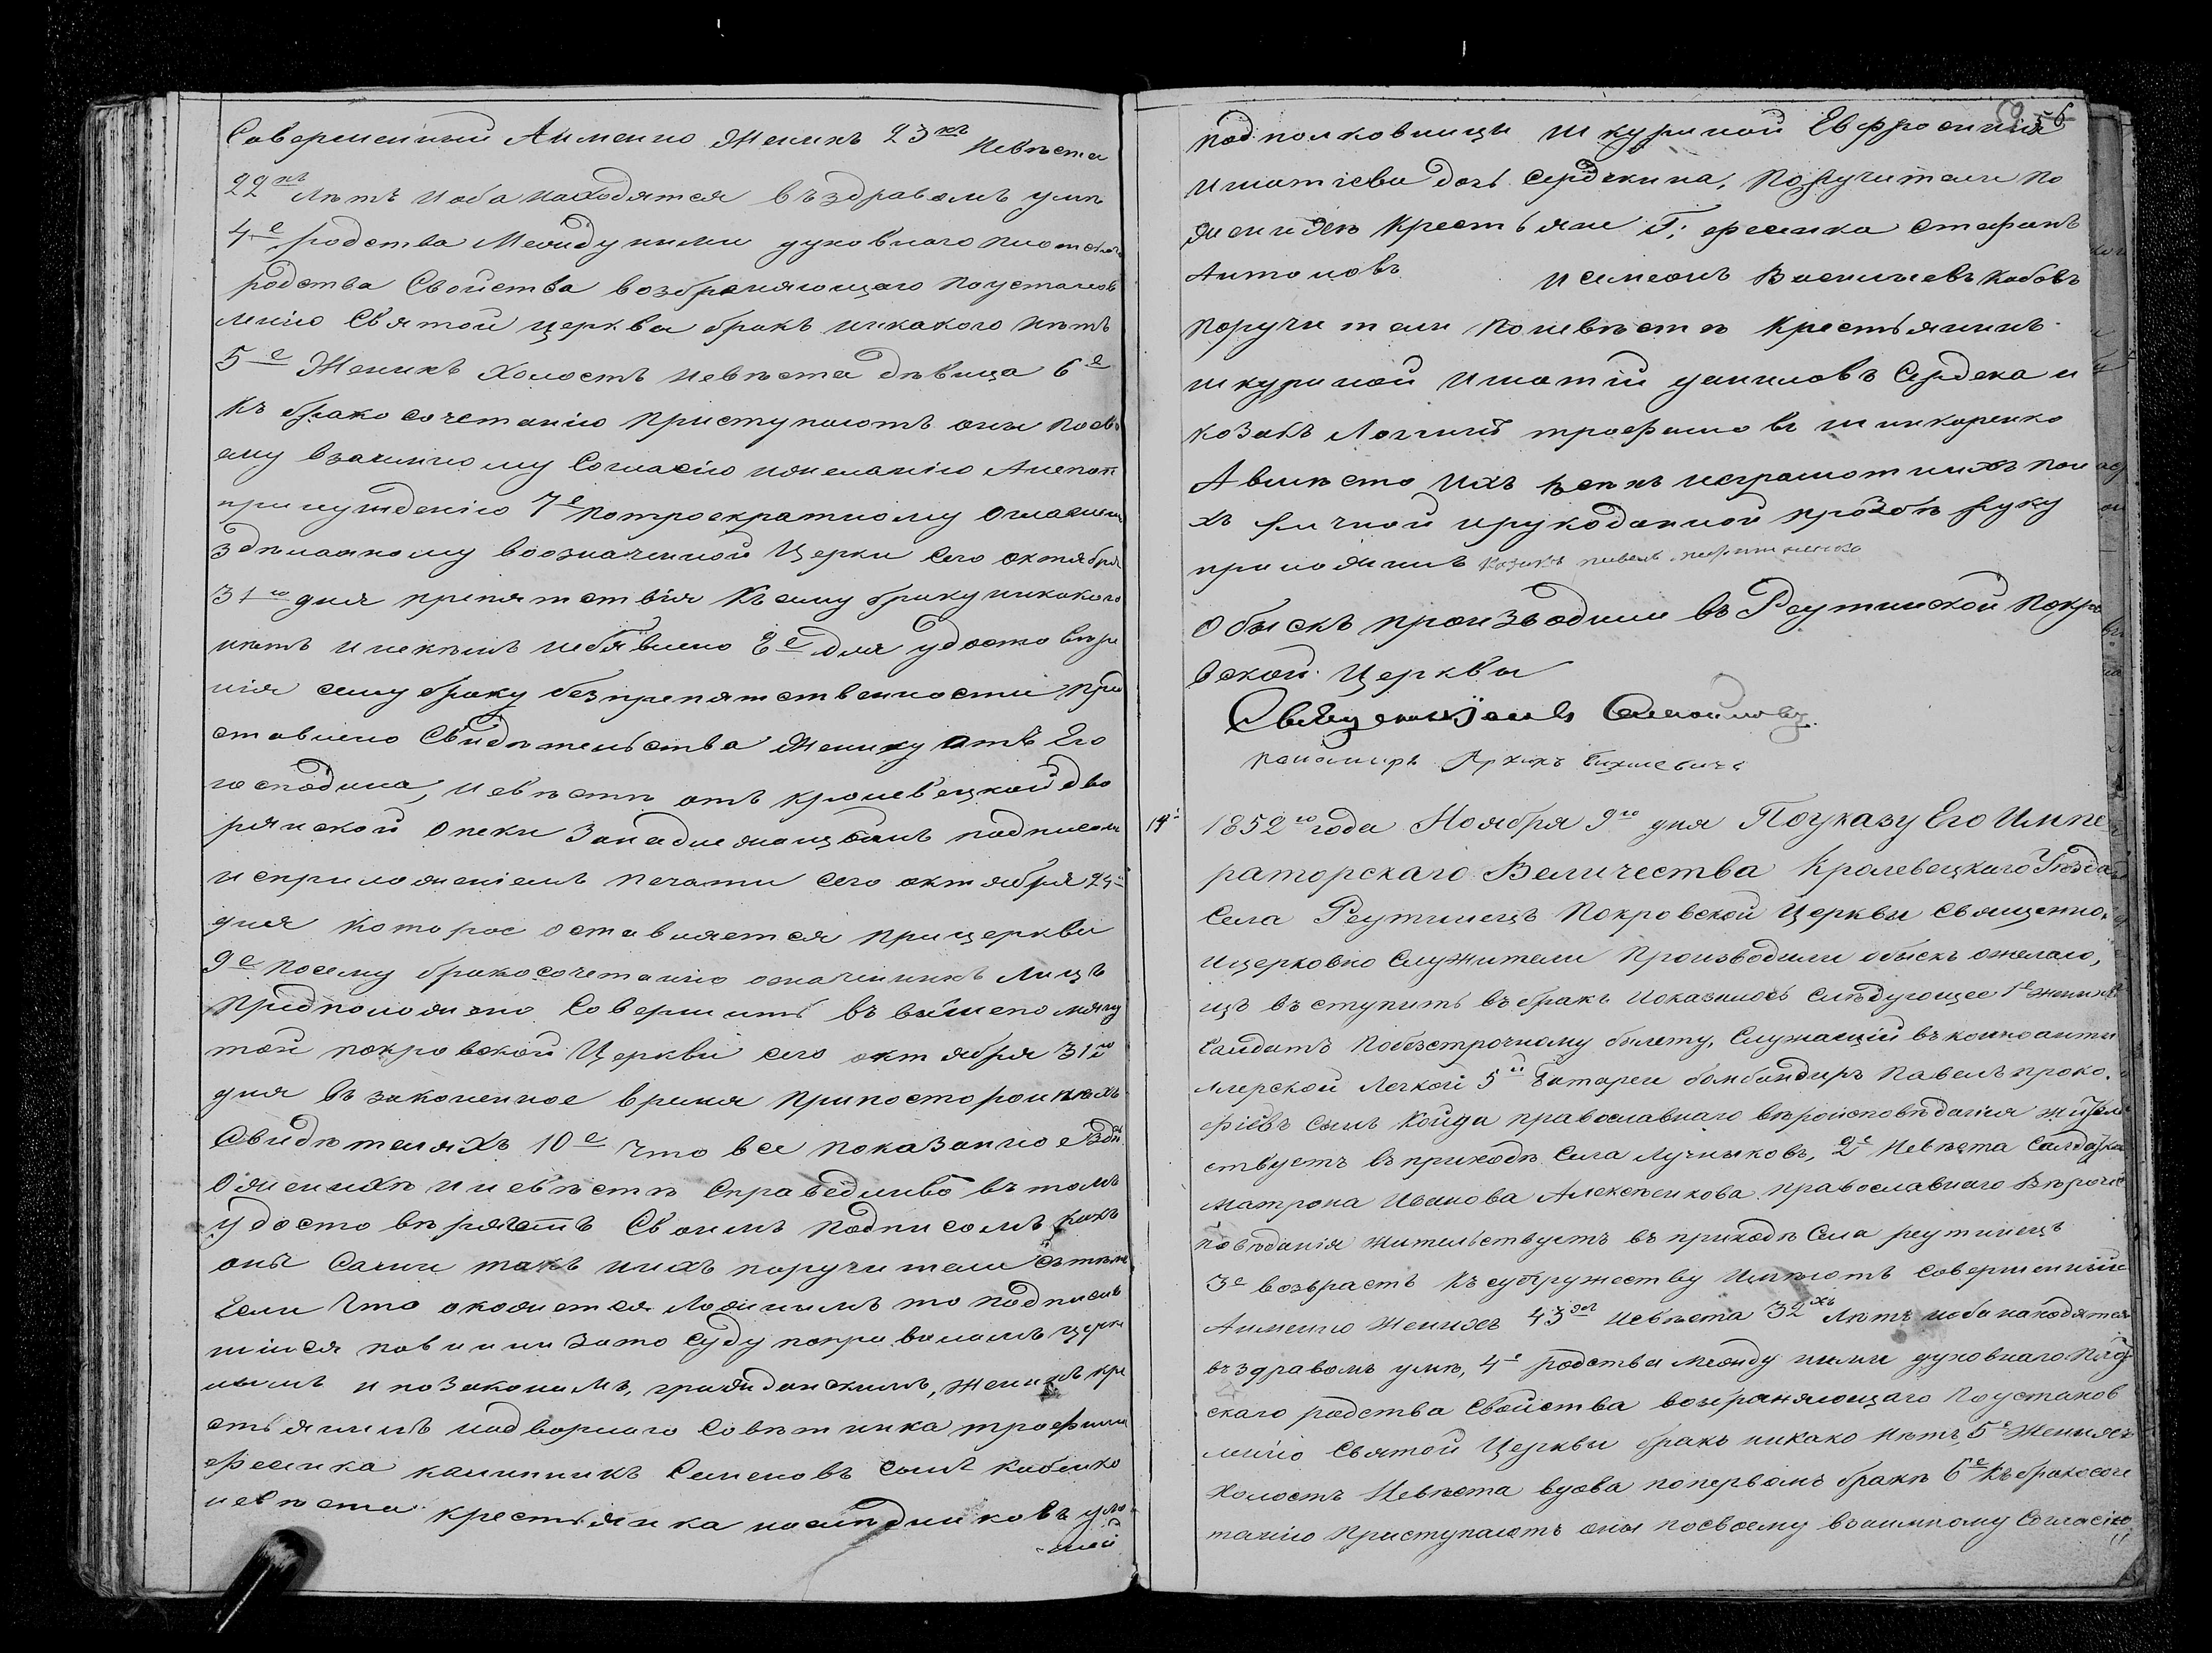 Совершенный Аименно Женихъ 23хъ Невѣста
22хъ лѣтъ иоба находятся въ здравомъ умѣ
4е родства Между ними духовнаго
родства Свойства возбраняющаго поустанов
ленію Святой церкви бракъ никакого нѣтъ
5е Женихъ Холостъ невѣста дѣвица 6е
къ бракосочетанію приступаютъ они посво
ему взаимному Согласію ижеланію Анепо
принужденію 7е потроекратному огла
здѣланному возначенной Церкви Сего октября
31го дня препятствія Ксему браку никакого
нѣтъ и некѣмъ небявлено 8е для удостовѣре
нія сему браку безпрепятственности пред
ставлено Свидѣтельства Жениху отъ Его
господина, невѣстѣ отъ кролевецкой дво
рянской опеки Занадлежащимъ подписом
исприложеніемъ печати сего октября
дня которое оставляется прицеркви
9е посему бракосочетанію означенныхъ лицъ
предположено Совершить въ вышепомяну
той покровской Церкви сего октября 31го
дня въ законенное время припостороннихъ
Свидѣтеляхъ 10е что все показанное здѣ
ожених и невѣстѣ Справедливо въ томъ
удостовѣряютъ Своимъ подписомъ какъ
они Сами такъ иихъ поручители стѣмъ
Если что окажется ложнымъ то подписав
шіися повинни зато Суду поправиламъ церк
нымъ и позаконамъ, гражданскимъ, женихъ кре
стьянинъ надворнаго Совѣтника трофима
фесенка калинникъ Семеновъ сынъ кабенко
невѣста крестьянка наслѣдниковъ
подполковници шкуриной Евфросинія
игнатіева дочь Сердекина, поручители по
женихѣ Крестьяне Г: фесенка стефанъ
Антоновъ и симеонъ Васильевъ
поручители поневѣстѣ Крестьянинъ
шкуриной игнатій даниловъ Сердека и
козакъ трофимовъ шинкаренко
Авмѣсто ихъ всѣхъ неграмотнихъ пои
хъ личной ирукоданной прозбѣ руку
приложилъ козакъ павелъ
Обыскъ произъодили въ Реутинской покро
вской Церквы
Священник Іоанъ Самойловъ
пономаръ
14. 1852го года Ноября 9го дня Поуказу Его Импе
раторскаго Величества Кролевецкаго Уѣзда
Села Реутинецъ Покровской Церкви Священно,
ицерковно Служители Производили обыскъ ожелаю,
щъ въступить въбракъ Иоказалось слѣдующее 1е женихъ
Салдатъ Побезстрочному билету, Служащій въ конноарти
лерской легкой 5й батареи бомбандиръ Павелъ проко,
фіевъ сынъ Койда православнаго вѣроисповѣданія жител
ствуетъ въприходѣ Села Лучниковъ, 2е Невѣста Салдатка
матрона Иванова Алексѣенкова православнаго Вѣроис
повѣданія жительствуетъ въ приходѣ Села реутинецъ
3е возврастъ къ субружеству Имѣютъ Совершенный
Аименно женихъ 43 невѣста 32хъ лѣтъ иоба находятся
въздравомъ умѣ, 4е родства между ними духовнаго плот
скаго родства Свойства возбраняющаго Поустанов
ленію Святой Церкви бракъ никако Нѣтъ, 5е Женихъ
Холостъ Невѣста вдова попервомъ бракѣ 6е къ бракосоче
танію Приступаютъ они посвоему взаимному Согласію